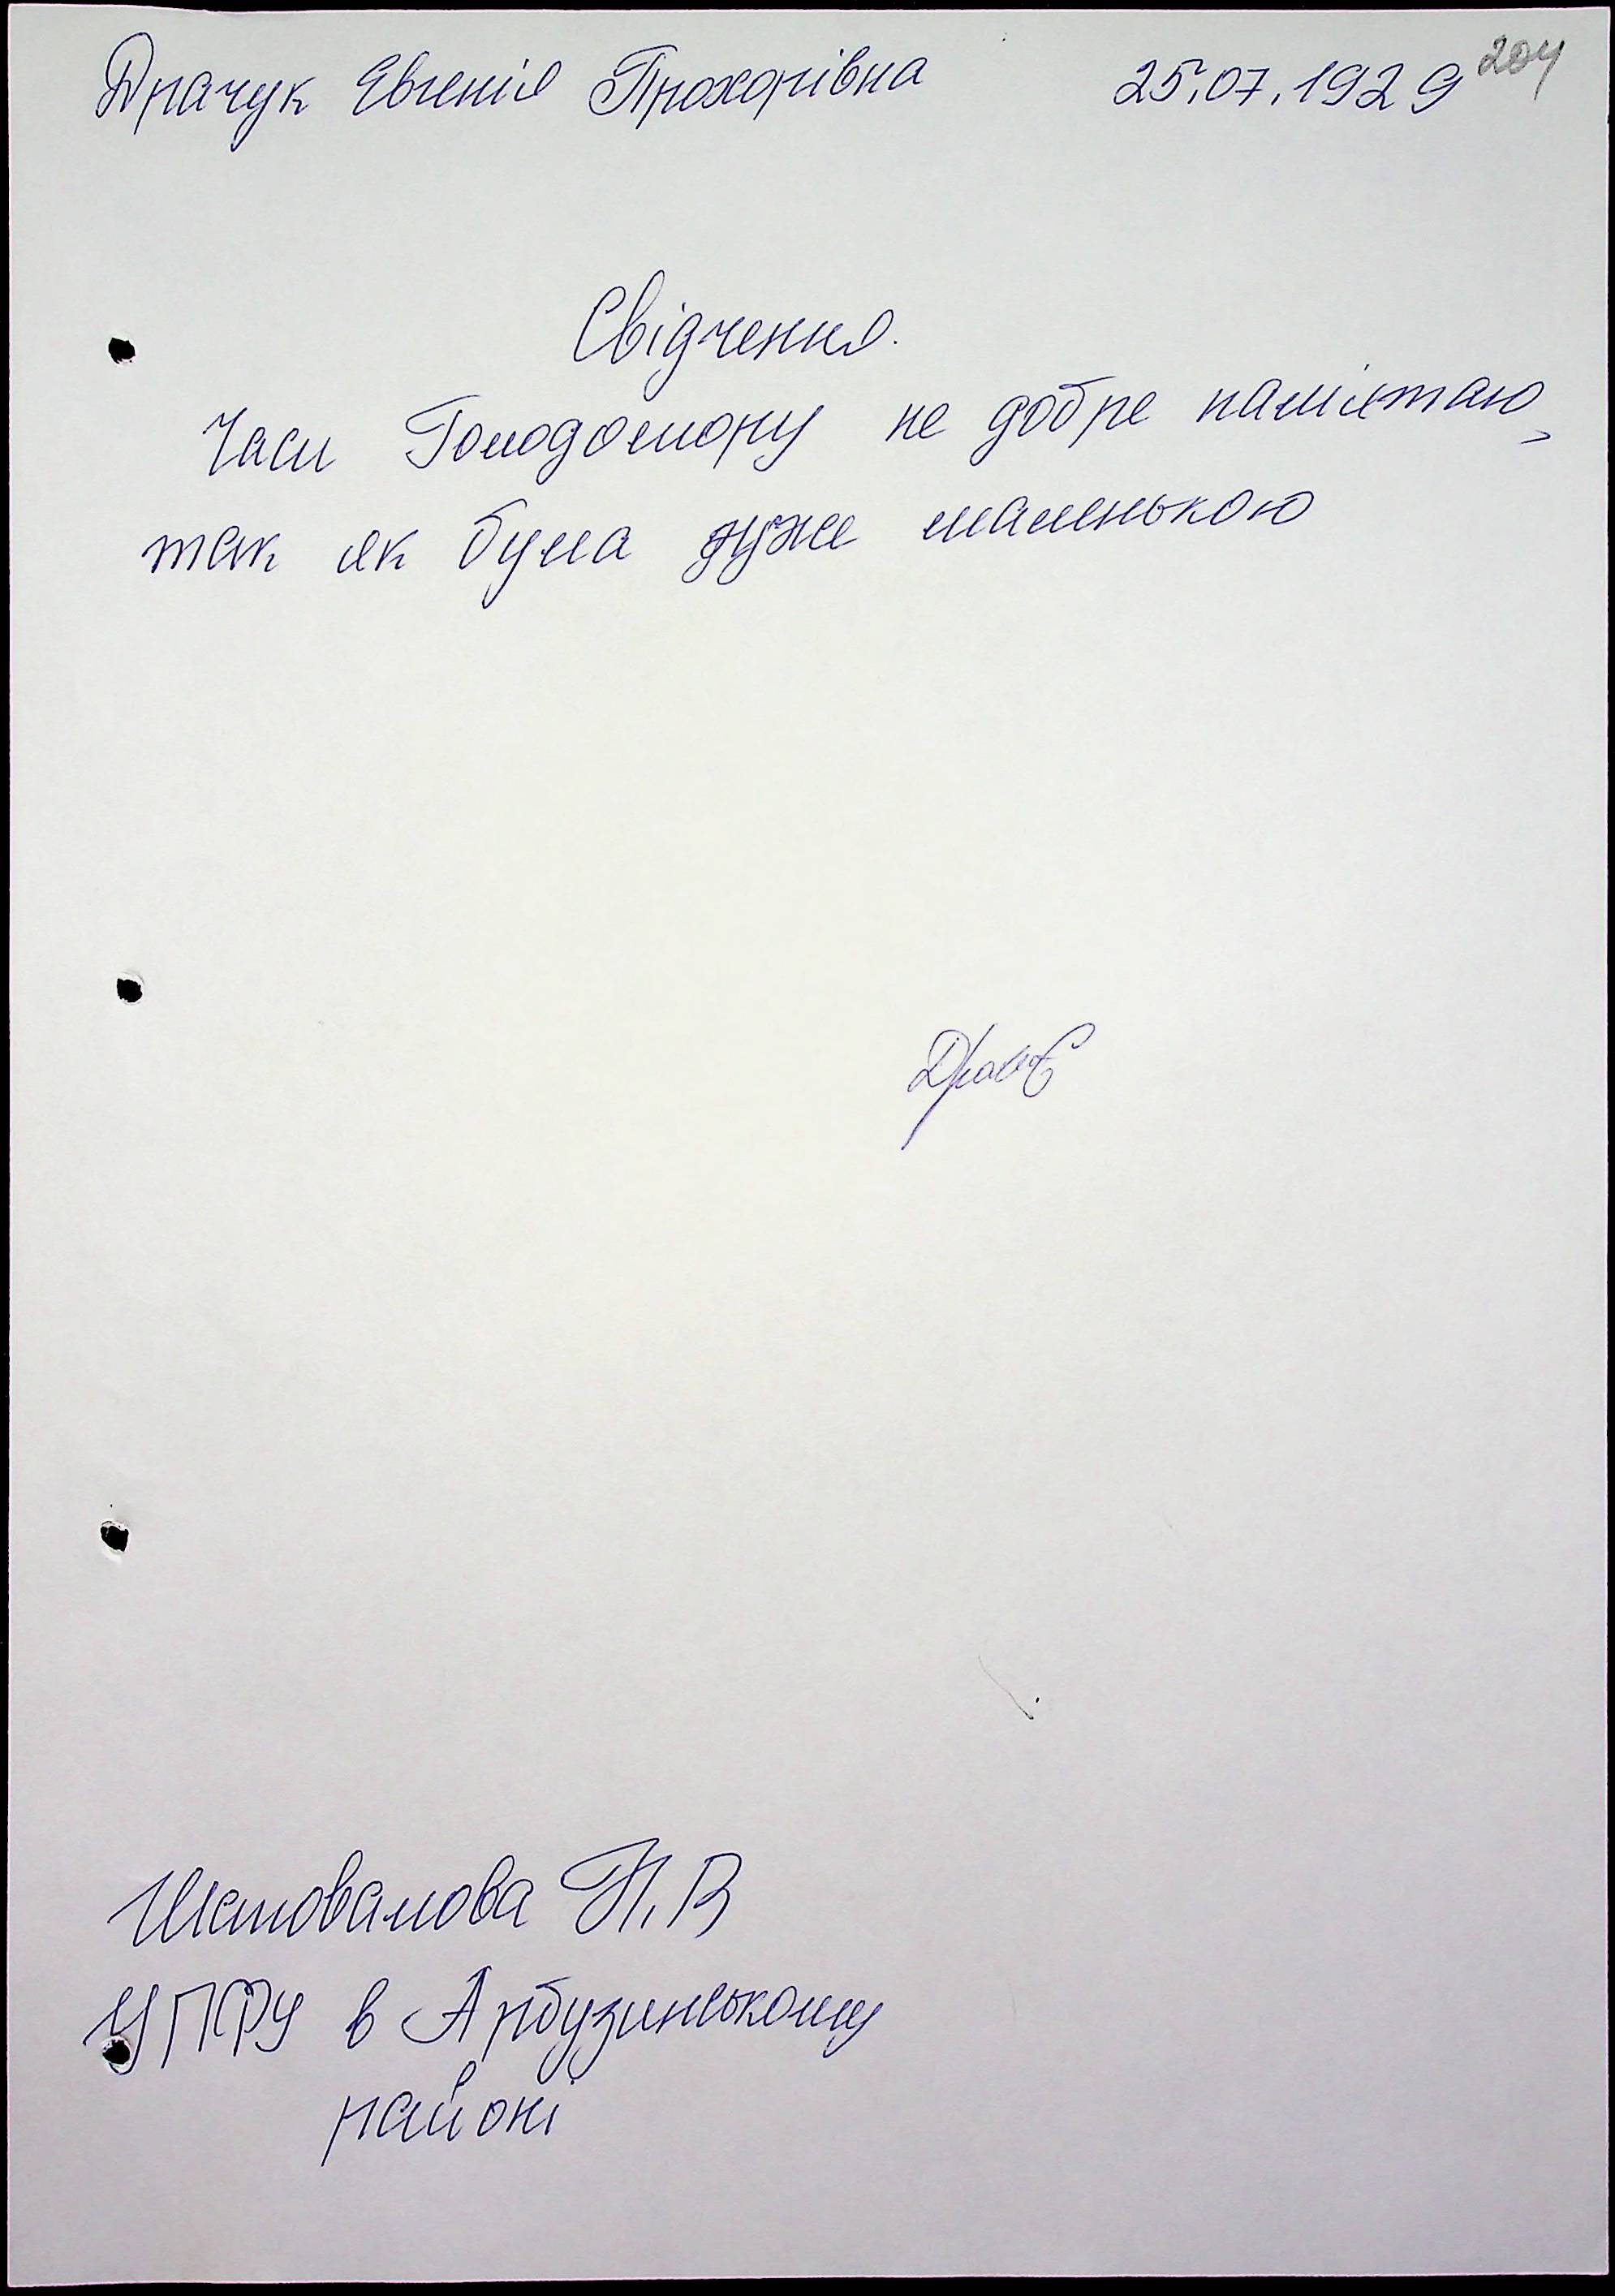 Драчук Євгенія Прохорівна 25.07.1929 204
Свідчення.
Часи Голодомору не добре памʼятаю,
так як була дуже маленькою
Шаповалова Н.В
УПФУ в Арбузинському
районі